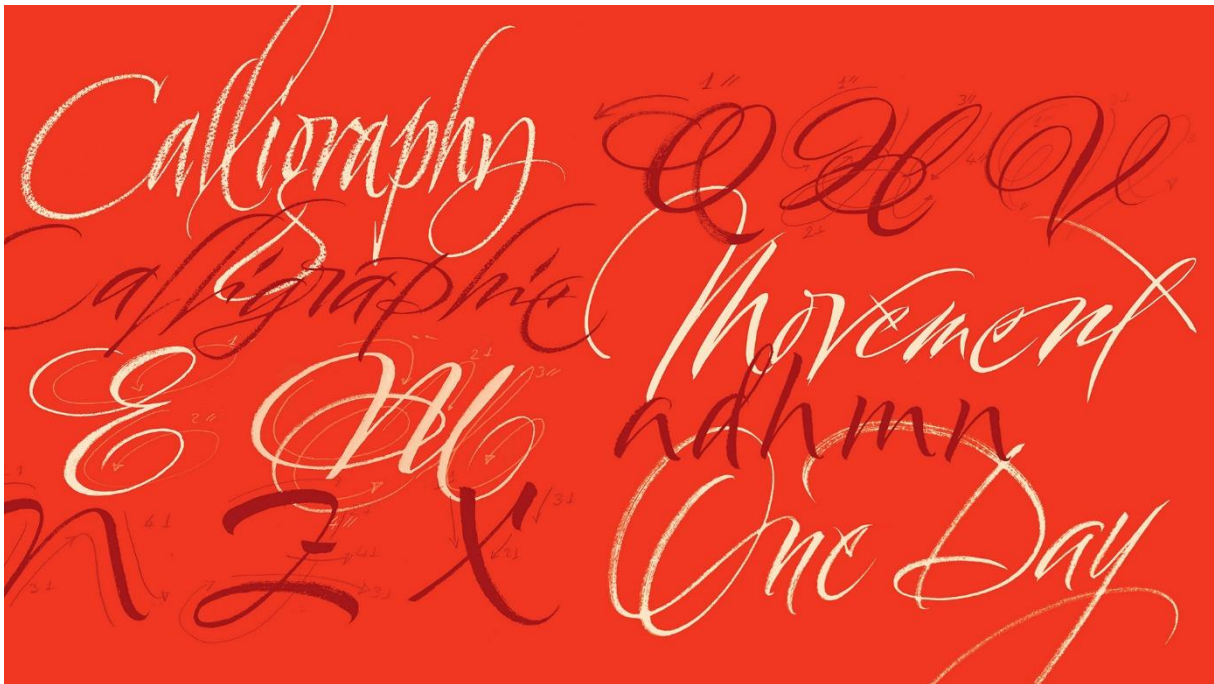 Calligraphy
Calligraphic
E M
n Z X
Q H V
Movement
adhmn
One Day